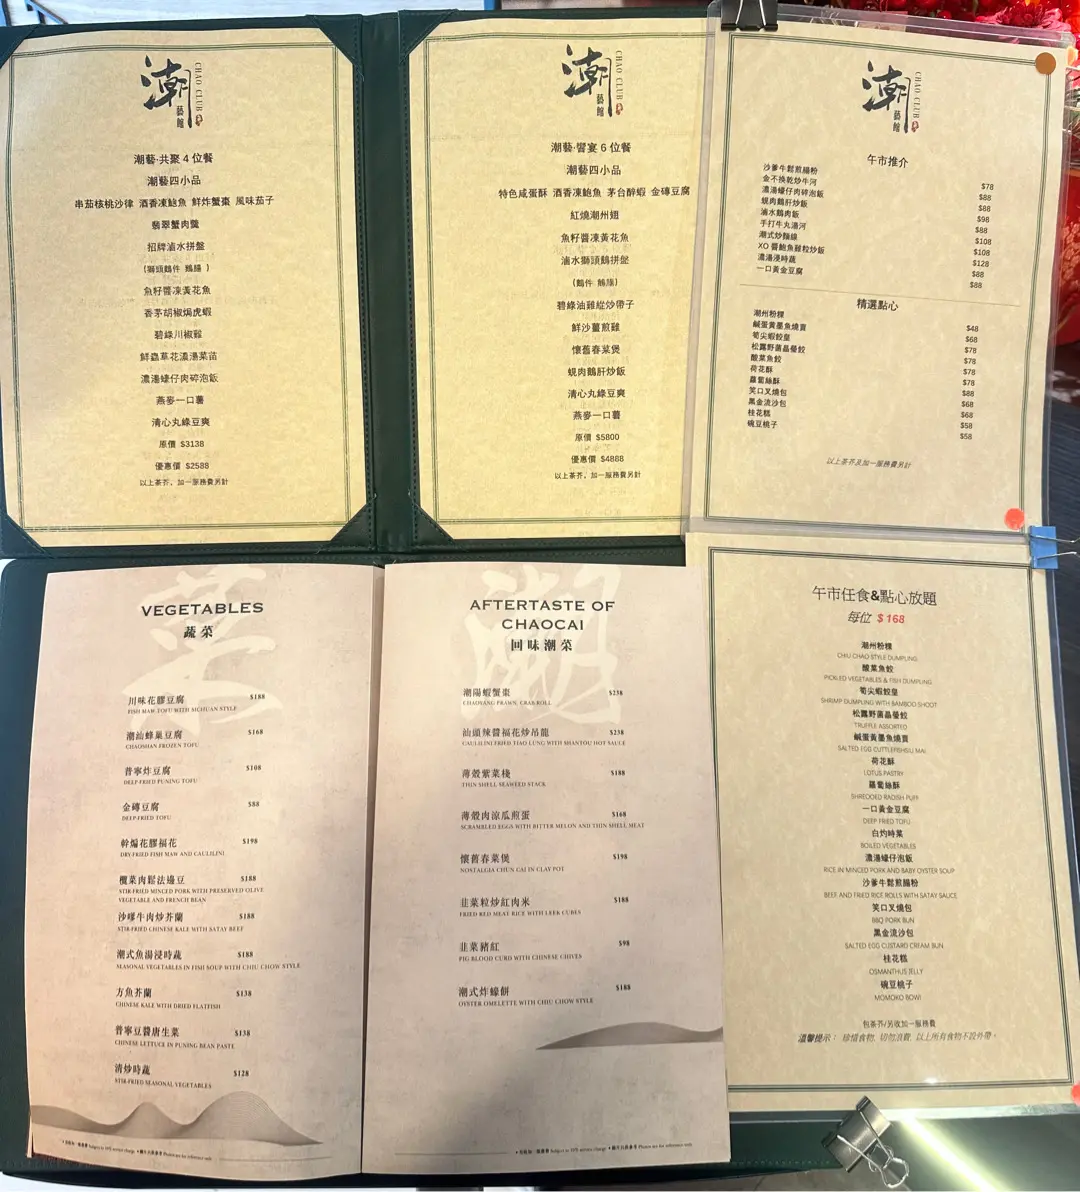 潮
藝館
CHAO CLUB
潮藝·共聚 4 位餐
潮藝四小品
串茄核桃沙律 酒香凍鮑魚 鮮炸蟹棗 風味茄子
翡翠蟹肉羹
招牌滷水拼盤
(獅頭鵝件 鵝腸)
魚籽醬凍黃花魚
香茅胡椒焗虎蝦
碧綠川椒雞
鮮蟲草花濃湯菜苗
濃湯蠔仔肉碎泡飯
燕麥一口薯
清心丸綠豆爽
原價 $3138
優惠價 $2588
以上茶芥，加一服務費另計
潮
藝館
CHAO CLUB
潮藝·饗宴 6 位餐
潮藝四小品
特色咸蛋酥 酒香凍鮑魚 茅台醉蝦 金磚豆腐
紅燒潮州翅
魚籽醬凍黃花魚
滷水獅頭鵝拼盤
(鵝件 鵝腸)
碧綠油雞縱炒帶子
鮮沙薑煎雞
懷舊春菜煲
蜆肉鵝肝炒飯
清心丸綠豆爽
燕麥一口薯
原價 $5800
優惠價 $4888
以上茶芥，加一服務費另計
潮
藝館
CHAO CLUB
午市推介
沙爹牛鬆煎腸粉 $78
金不換乾炒牛河 $88
濃湯蠔仔肉碎泡飯 $88
蜆肉鵝肝炒飯 $98
滷水鵝肉飯 $88
手打牛丸湯河 $108
潮式炒麵線 $108
XO 醬鮑魚雞粒炒飯 $128
濃湯浸時蔬 $88
一口黃金豆腐 $88
精選點心
潮州粉粿 $48
鹹蛋黄墨魚燒賣 $68
筍尖蝦餃皇 $78
松露野菌晶瑩餃 $78
酸菜魚餃 $78
荷花酥 $78
蘿蔔絲酥 $88
笑口叉燒包 $68
黑金流沙包 $68
桂花糕 $58
碗豆桃子 $58
以上茶芥及加一服務費另計
VEGETABLES
蔬菜
川味花膠豆腐 $188
FISH MAW TOFU WITH SICHUAN STYLE
潮汕蜂巢豆腐 $168
CHAOSHAN FROZEN TOFU
普寧炸豆腐 $108
DEEP-FRIED PUNING TOFU
金磚豆腐 $88
DEEP-FRIED TOFU
幹煸花膠福花 $198
DRY-FRIED FISH MAW AND CAULILINI
欖菜肉鬆法邊豆 $188
STIR-FRIED MINCED PORK WITH PRESERVED OLIVE
VEGETABLE AND FRENCH BEAN
沙嗲牛肉炒芥蘭 $188
STIR-FRIED CHINESE KALE WITH SATAY BEEF
潮式魚湯浸時蔬 $188
SEASONAL VEGETABLES IN FISH SOUP WITH CHIU CHOW STYLE
方魚芥蘭 $138
CHINESE KALE WITH DRIED FLATFISH
普寧豆醬唐生菜 $138
CHINESE LETTUCE IN PUNING BEAN PASTE
清炒時蔬 $128
STIR-FRIED SEASONAL VEGETABLES
•另收加一服務費 Subject to 10% service charge •圖片只供參考 Photos are for reference only
AFTERTASTE OF
CHAOCAI
回味潮菜
潮陽蝦蟹棗 $238
CHAOYANG PRAWN, CRAB ROLL
汕頭辣醬福花炒吊龍 $238
CAULILINI FRIED TIAO LUNG WITH SHANTOU HOT SAUCE
薄殼紫菜棧 $188
THIN SHELL SEAWEED STACK
薄殼肉涼瓜煎蛋 $168
SCRAMBLED EGGS WITH BITTER MELON AND THIN SHELL MEAT
懷舊春菜煲 $198
NOSTALGIA CHUN CAI IN CLAY POT
韭菜粒炒紅肉米 $188
FRIED RED MEAT RICE WITH LEEK CUBES
韭菜豬紅 $98
PIG BLOOD CURD WITH CHINESE CHIVES
潮式炸蠔餅 $188
OYSTER OMELETTE WITH CHIU CHOW STYLE
•另收加一服務費 Subject to 10% service charge •圖片只供參考 Photos are for reference only
午市任食&點心放題
每位 $168
潮州粉粿
CHIU CHAO STYLE DUMPLING
酸菜魚餃
PICKLED VEGETABLES & FISH DUMPLING
筍尖蝦餃皇
SHRIMP DUMPLING WITH BAMBOO SHOOT
松露野菌晶瑩餃
TRUFFLE ASSORTED
鹹蛋黃墨魚燒賣
SALTED EGG CUTTLEFISHSIU MAI
荷花酥
LOTUS PASTRY
蘿蔔絲酥
SHREDDED RADISH PUFF
一口黃金豆腐
DEEP FRIED TOFU
白灼時菜
BOILED VEGETABLES
濃湯蠔仔泡飯
RICE IN MINCED PORK AND BABY OYSTER SOUP
沙爹牛鬆煎腸粉
BEEF AND FRIED RICE ROLLS WITH SATAY SAUCE
笑口叉燒包
BBQ PORK BUN
黑金流沙包
SALTED EGG CUSTARD CREAM BUN
桂花糕
OSMANTHUS JELLY
碗豆桃子
MOMOKO BOWI
包茶芥/另收加一服務費
溫馨提示： 珍惜食物, 切勿浪費, 以上所有食物不設外帶。